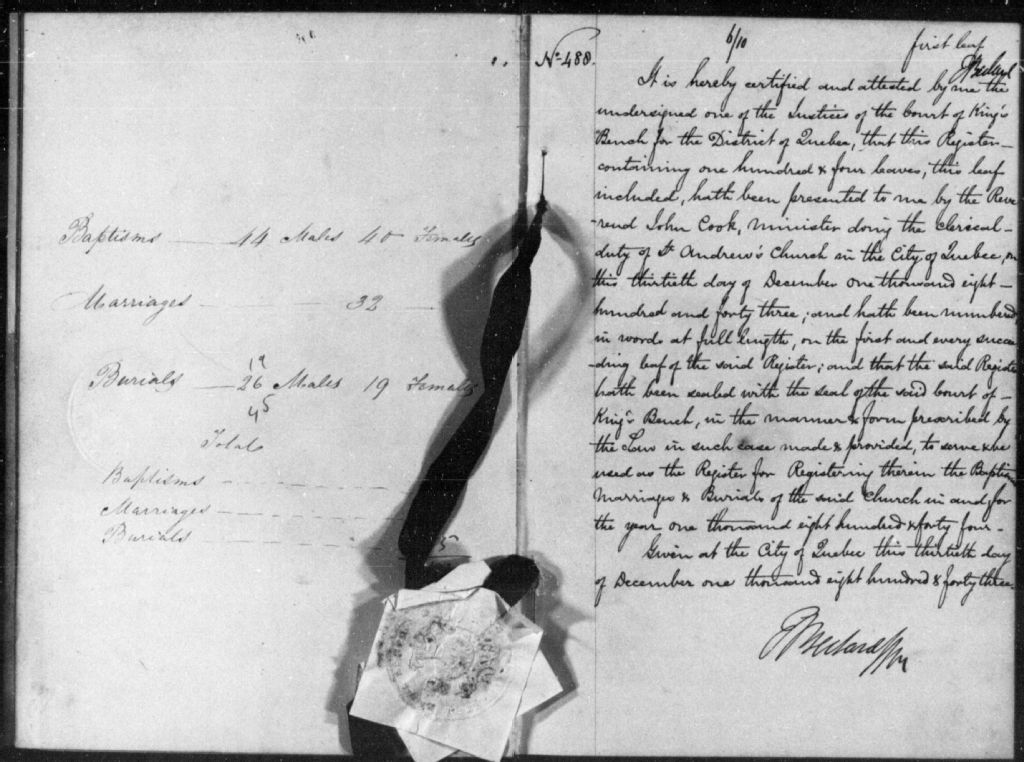 Baptisms — 44 Males 40 Females
Marriages — 32 —
19
Burials — 26 Males 19 Females
45
Total
Baptisms
Marriages
Burials
No. 488.
6/10
first leaf
Bedard
It is hereby certified and attested by me the
undersigned one of the Justices of the Court of King's
Bench for the District of Quebec, that this Register —
containing one hundred & four leaves, this leaf
included, hath been presented to me by the Reve
-rend John Cook, minister doing the Clerical —
duty of St. Andrew's Church in the City of Quebec, on
this thirtieth day of December one thousand eight —
hundred and forty three; and hath been numbered,
in words at full length, on the first and every succee
-ding leaf of the said Register; and that the said Register
hath been sealed with the seal of the said Court of —
King's Bench, in the manner & form prescribed by
the Law in such case made & provided, to serve & be
used as the Register for Registering therein the Baptisms
Marriages & Burials of the said Church in and for
the year one thousand eight hundred & forty four —
Given at the City of Quebec this thirtieth day
of December one thousand eight hundred & forty three —
Bedard